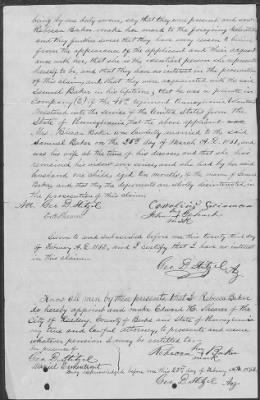 being by me duly sworn, say that they were present and saw
Rebecca Baker make her mark to the foregoing declaration
and they further swear that they have every reason to believe
from the appearance of the applicant and their acquaint-
ance with her, that she is the identical person she represents
herself to be, and that they have no interest in the prosecution
of this claim, and that they were acquainted with the said
Samuel Baker in his lifetime, that he was a private in
Company (E) of the 48th regiment Pennsylvania Volunteers
mustered into the service of the United States from the
State of Pennsylvania, that the above applicant now
Mrs. Rebecca Baker was lawfully married to the said
Samuel Baker on the 28th day of March A.D. 1861, and
was his wife at the time of his decease, and that she has
remained his widow ever since, and she had by her said
husband one child aged ten months, of the name of
Baker, and that they the deponents are wholly disinterested in
the prosecution of this claim.
Att Geo D. Stitzel
his
mark
Sworn to and subscribed before me this twenty third day
of February A.D. 1863, and I certify that I have no interest
in this claim
Geo D. Stitzel
Know all men by these presents, that I Rebecca Baker
do hereby appoint and make Edward H. of the
City of Reading, County of Berks and State of Pennsylvania
my true and lawful Attorney to present and secure
whatever pension I may be entitled to.
In presence of
Rebecca her Baker
mark
Geo D. Stitzel
Duly acknowledged before me this 23d day of February A.D. 1863
Geo D. Stitzel